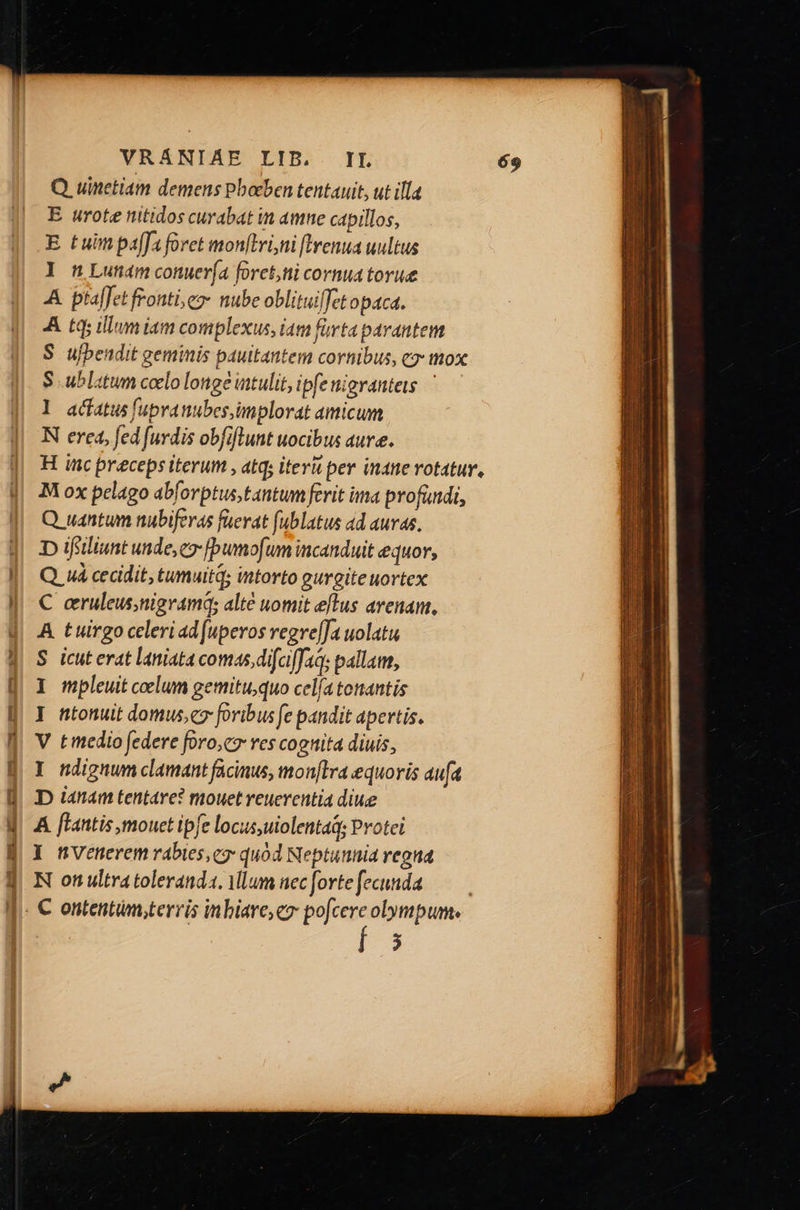 VRANIAE LIB. II. 69
Q uinetiam demens phœben tentauit, ut illa
E urotæ nitidos curabat in amne capillos,
E t uim passa foret monstri, ni strenua uultus
I n Lunam conuersa foret, ni cornua toruæ
A ptasset fronti, & nube oblituisset opaca.
A tq; illum iam complexus, iam furta parantem
S uspendit geminis pauitantem cornibus, & mox
S ublatum cœlo longe intulit, ipse nigranteis
I actatus supra nubes, implorat amicum
N erea, sed surdis obsistunt uocibus auræ.
H inc præceps iterum, atq; iterū per inane rotatur,
M ox pelago absorptus, tantum ferit ima profundi,
Q uantum nubiferas fuerat sublatus ad auras.
D issiliunt undæ, & spumosum incanduit æquor,
Q uà cecidit, tumuitq; intorto gurgite uortex
C œruleus, nigramq; altè uomit æstus arenam.
A t uirgo celeri ad superos regressa uolatu
S icut erat laniata comas, discissaq; pallam,
I mpleuit cœlum gemitu, quo celsa tonantis
I ntonuit domus, & foribus se pandit apertis.
V t medio sedere foro, & res cognita diuis,
I ndignum clamant facinus, monstra æquoris ausa
D ianam tentare? mouet reuerentia diuæ
A stantis, mouet ipse locus, uiolentaq; Protei
I n Venerem rabies, & quòd Neptunnia regna
N on ultra toleranda. illum nec sorte secunda
C ontentum, terris inhiare, & poscere olympum.
f 3